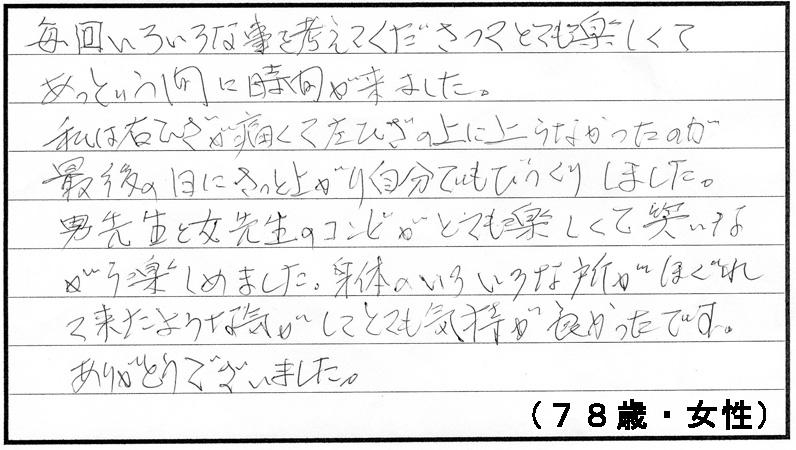 毎回いろいろな事を考えてくださってとても楽しくて
あっという間に時間が来ました。
私は右ひざが痛くて左ひざの上に上らなかったのが
最後の日にさっと上がり自分でもびっくりしました。
男先生と女先生のコンビがとても楽しくて笑いな
がら楽しめました。身体のいろいろな所がほぐれ
て来たような気がしてとても気持が良かったです。
ありがとうございました。
（７８歳・女性）